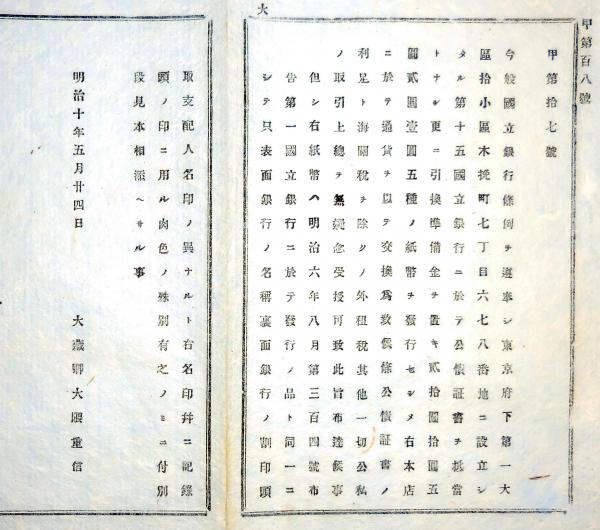 甲第百八號
大
甲第拾七號
今般國立銀行條例ヲ遵奉シ東京府下第一大
區拾小區木挽町七丁目六七八番地ニ設立シ
タル第十五國立銀行ニ於テ公債証書ヲ抵當
トナシ更ニ引換準備金ヲ置キ貳拾圓拾圓五
圓貳圓壹圓五種ノ紙幣ヲ發行セシメ右本店
ニ於テ通貨ヲ以テ交換爲致候條公債証書ノ
利足ト海關稅ヲ除クノ外租稅其他一切公私
ノ取引上總テ無疑念受授可致此旨布達候事
但シ右紙幣ハ明治六年八月第三百四號布
告第一國立銀行ニ於テ發行ノ品ト同一ニ
シテ只表面銀行ノ名稱裏面銀行ノ割印頭
取支配人名印ノ異ナルト右名印幷ニ記錄
頭ノ印ニ用ル肉色ノ殊別有之ノミニ付別
段見本相添ヘサル事
明治十年五月廿四日
大藏卿大隈重信